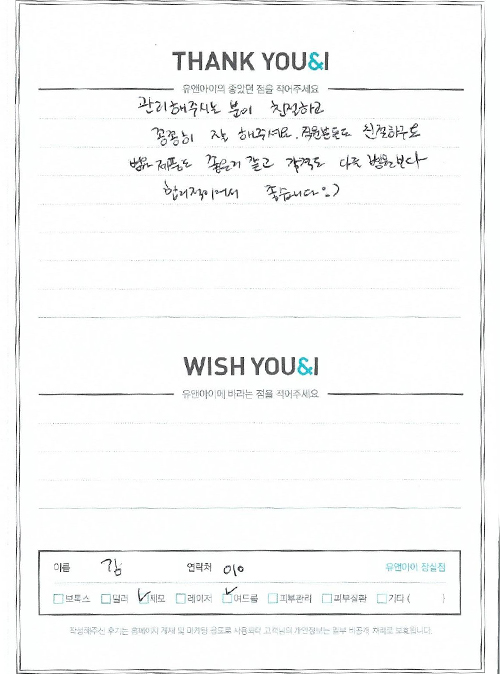 THANK YOU&I
유앤아이의 좋았던 점을 적어주세요
관리해주시는 분이 친절하고
꼼꼼히 잘 해주셔요. 직원분들도 친절하구요
병원 제품도 좋은거 같고 가격도 다른 병원보다
합리적이어서 좋습니다 :)
WISH YOU&I
유앤아이에 바라는 점을 적어주세요
이름 김 연락처 010 유앤아이 잠실점
보톡스 필러 제모 레이저 여드름 피부관리 피부질환 기타 ( )
작성해주신 후기는 홈페이지 게재 및 마케팅 용도로 사용되며 고객님의 개인정보는 일부 비공개 처리로 보호됩니다.